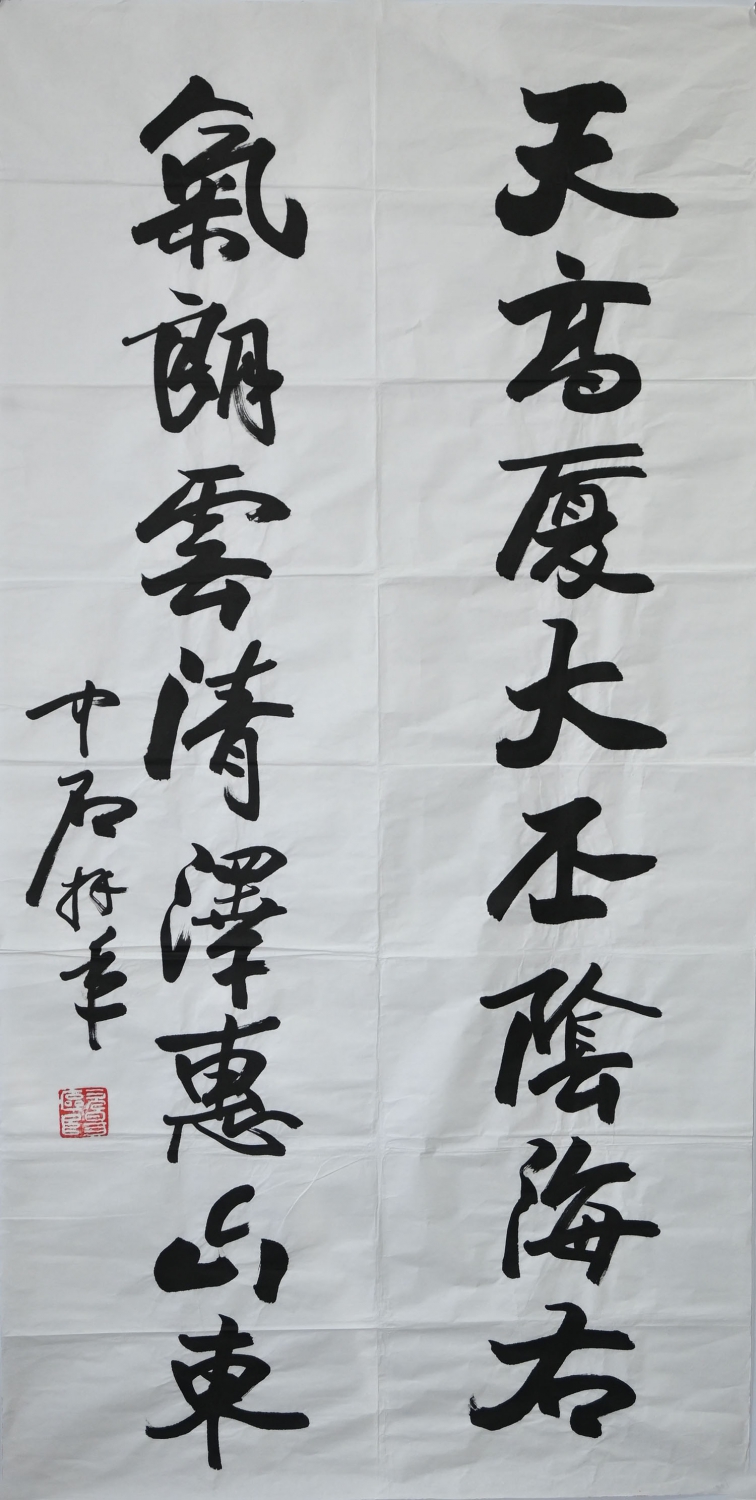 天高厦大丕蔭海右
氣朗雲清澤惠山東
中石拜手